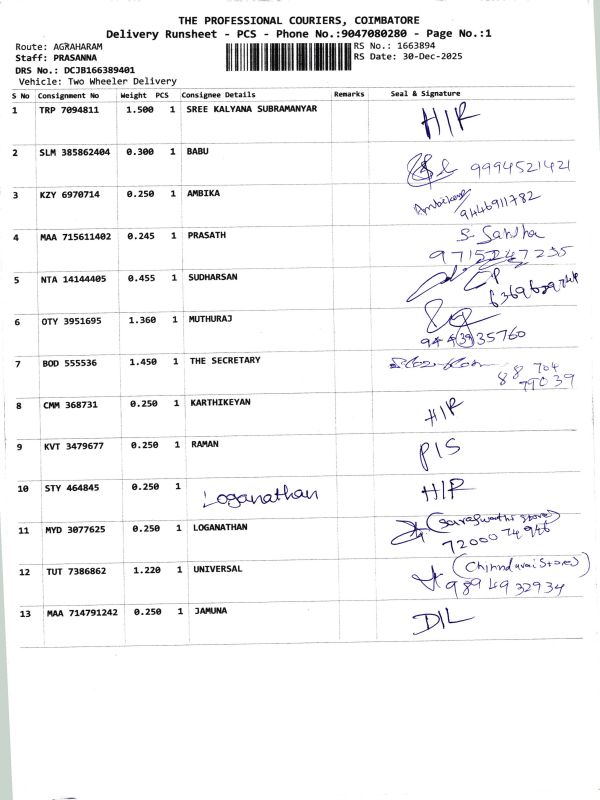 THE PROFESSIONAL COURIERS, COIMBATORE
Delivery Runsheet - PCS - Phone No.:9047080280 - Page No.:1
Route: AGRAHARAM RS No.: 1663894
Staff: PRASANNA RS Date: 30-Dec-2025
DRS No.: DCJB166389401
Vehicle: Two Wheeler Delivery
S No Consignment No Weight PCS Consignee Details Remarks Seal & Signature
1 TRP 7094811 1.500 1 SREE KALYANA SUBRAMANYAR
2 SLM 385862404 0.300 1 BABU 9994521421
3 KZY 6970714 0.250 1 AMBIKA Ambika 9446911782
4 MAA 715611402 0.245 1 PRASATH
5 NTA 14144405 0.455 1 SUDHARSAN
6 OTY 3951695 1.360 1 MUTHURAJ
7 BOD 555536 1.450 1 THE SECRETARY 88 704 79039
8 CMM 368731 0.250 1 KARTHIKEYAN
9 KVT 3479677 0.250 1 RAMAN P/S
10 STY 464845 0.250 1 Loganathan
11 MYD 3077625 0.250 1 LOGANATHAN (Saraswathi Store) 72000 74946
12 TUT 7386862 1.220 1 UNIVERSAL 9894932934
13 MAA 714791242 0.250 1 JAMUNA D/L